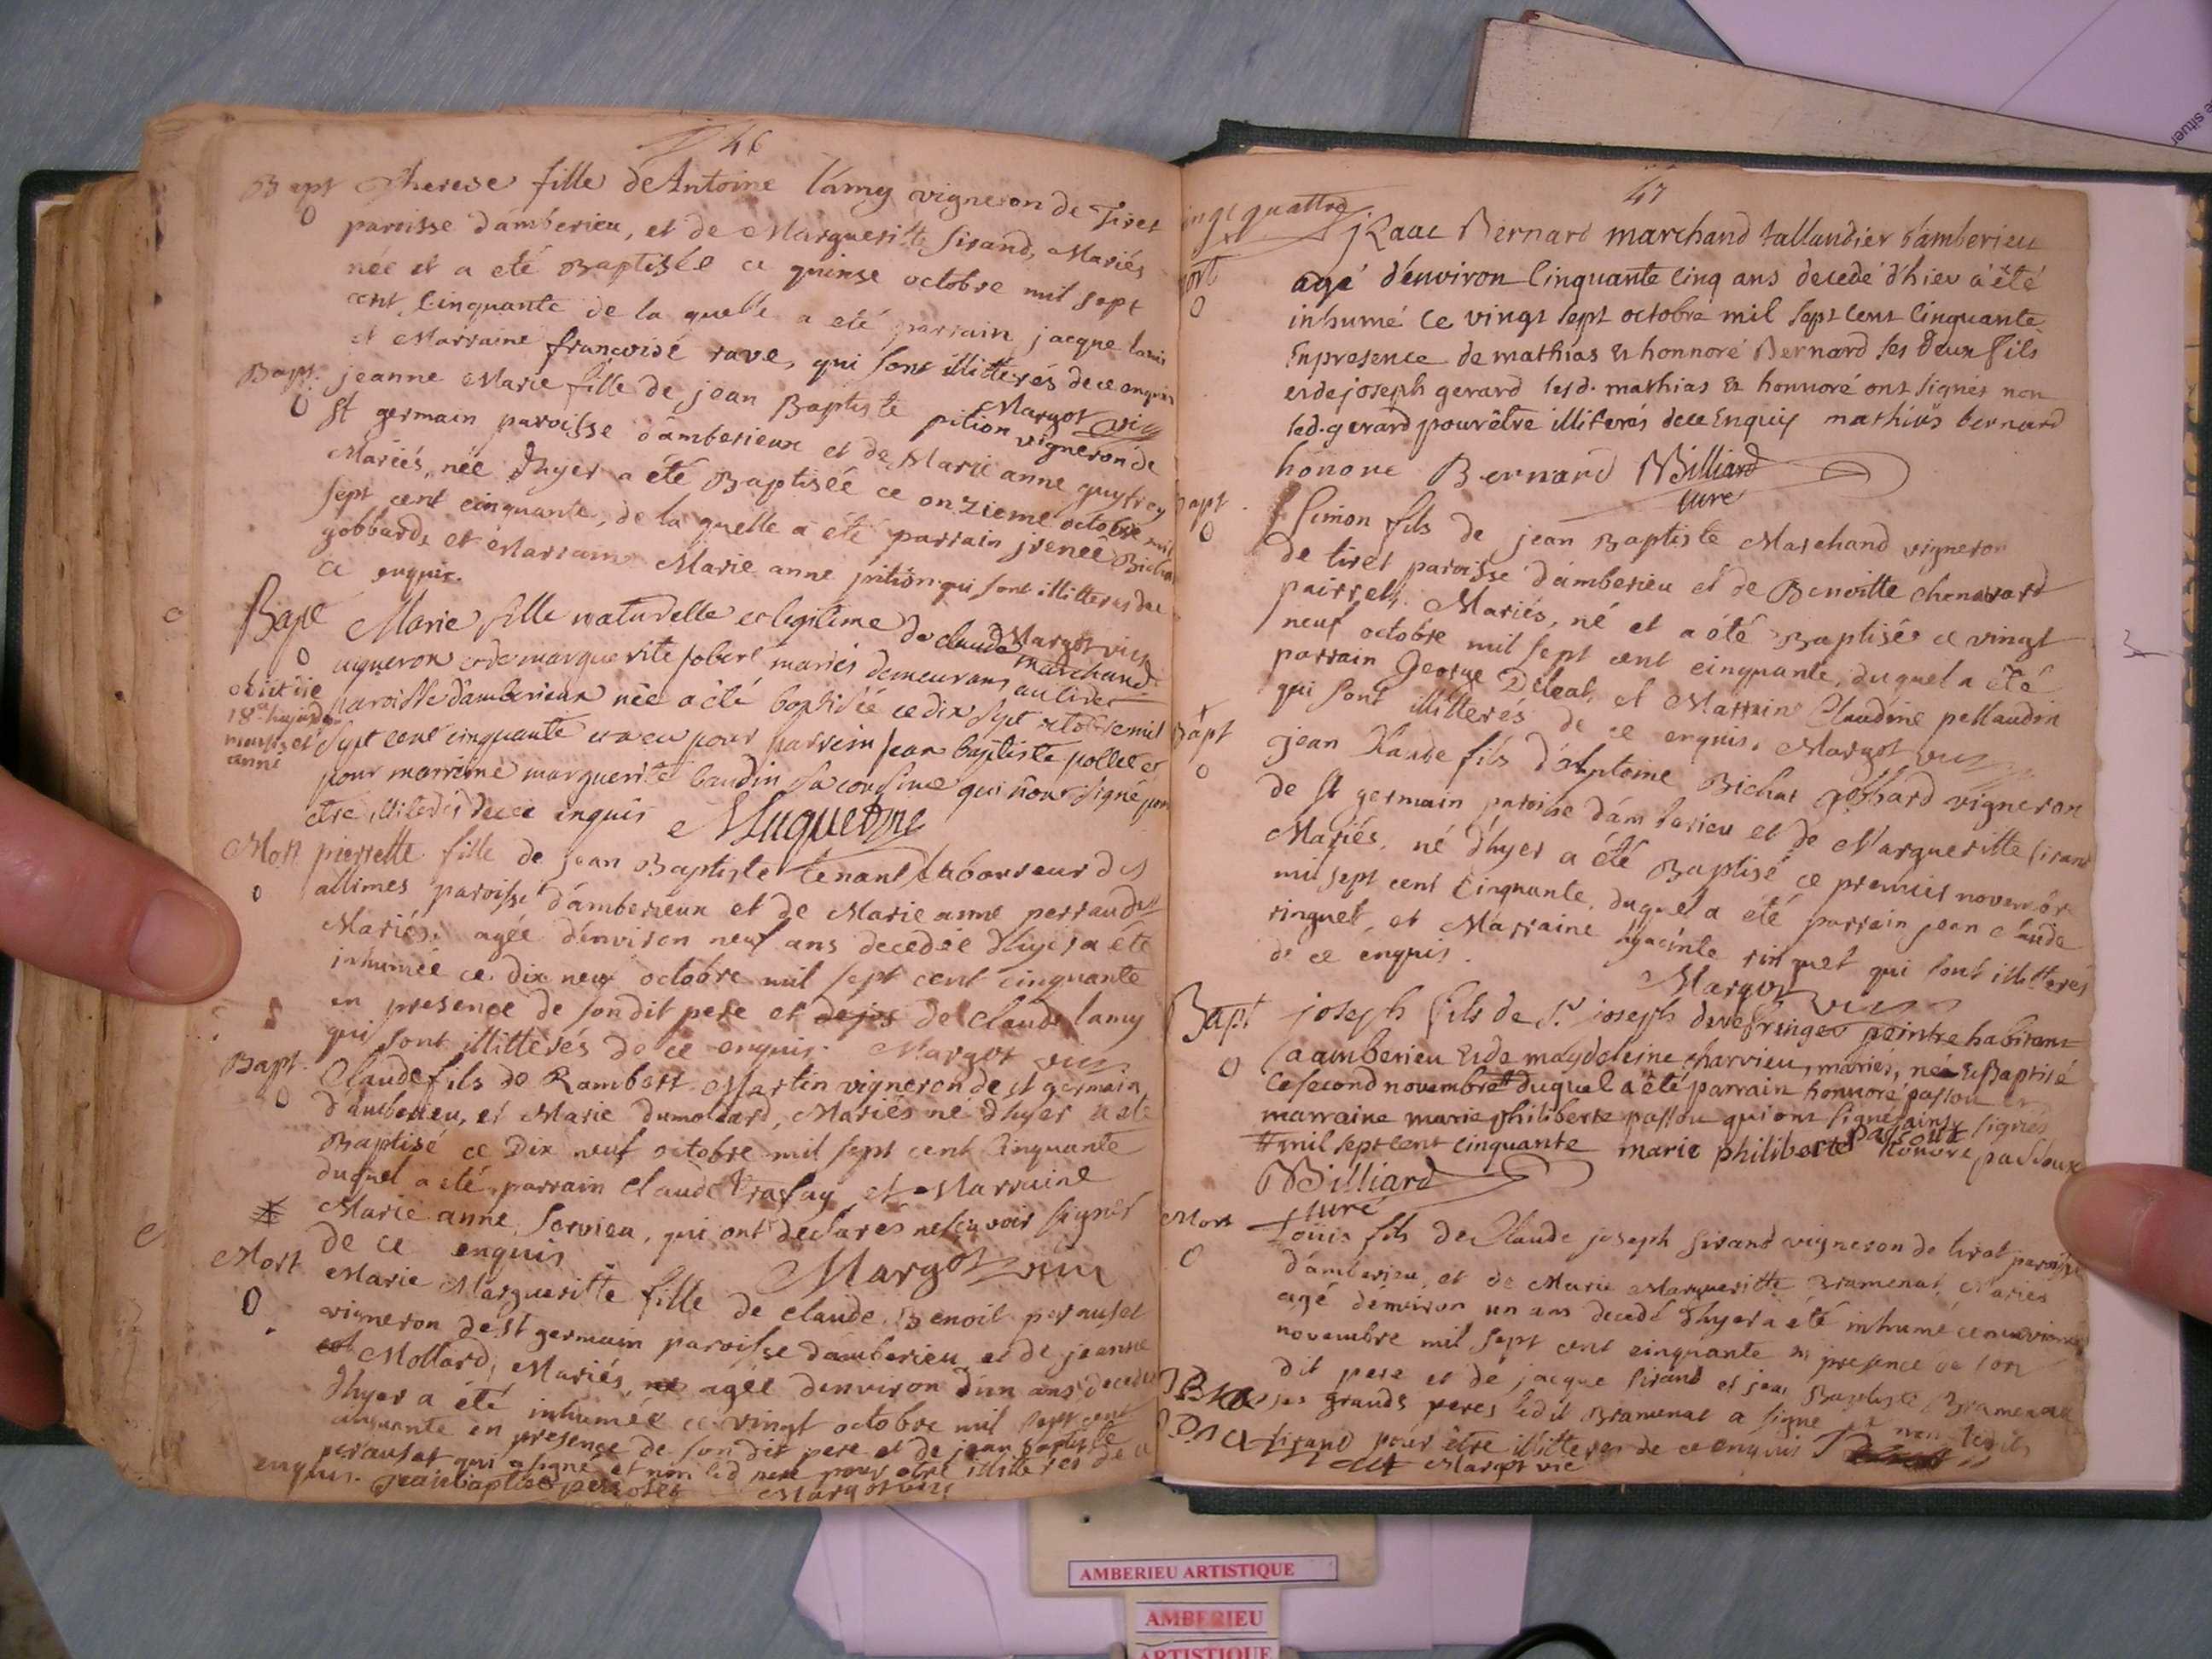 46
Bapt Therese fille de Antoine lámy vigneron de Tiret
0 paroisse d'amberieu, et de Margueritte sirand, Mariés
née et a eté Baptisée ce quinse octobre mil sept
cent Cinquante de la quelle a eté parrain jacque
et Marraine françoise rave, qui sont illitterés de ce enquis
Margot vic
Bapt. jeanne Marie fille de jean Baptiste pition vigneron de
0 St germain paroisse d'amberieux et de Marie anne guyfrey
Mariés, née d'hyer a été Baptisée ce onzieme octobre mil
sept cent cinquante, de la quelle a eté parrain jreneé
gobbard, et Marraine Marie anne pition qui sont illitterés de
ce enquis.
Margot vic
Bapt Marie fille naturelle et legitime de claude Marchand
0 vigneron et de marguerite jobert mariés demeurans au tiret
paroisse d'amberieux née a été baptisée ce dix sept octobre mil
obiit die
18a hujus
mensis et
anni
Sept cent cinquante et a eu pour parrein jean baptiste pollet et
pour marreine marguerite baudin sa cousine qui n'ont signé pour
etre illiterés de ce enquis Muguet
Mort pierrette fille de jean Baptiste tenant Labourreur des
0 allimes paroisse d'amberieux et de Marie anne perraud
Mariés. agée d'environ neuf ans decedée d'hyer a été
inhumée ce dix neuf octobre mil sept cent cinquante
en presence de son dit pere et de jos de Claude lamy
qui sont illitterés de ce enquis. Margot vic
Bapt. Claude fils de Rambert Martin vigneron de st germain
0 d'amberieu, et Marie dumollard, Mariés né d'hyer a eté
Baptisé ce Dix neuf octobre mil sept cent Cinquante
duquel a eté parrain Claude et Marraine
Marie anne servieu, qui ont declarés ne sçavoir signer
de ce enquis Margot vic
Mort Marie Margueritte fille de claude Benoit perauset
0 vigneron de st germain paroisse d'amberieu et de jeanne
Mollard, Mariés, né agée d'environ d'un ans decedée
d'hyer a été inhumée ce vingt octobre mil sept cent
cinquante en presence de son dit pere et de jean baptiste
perauset qui a signé et non led pere pour etre illitteres de ce
enquis. jean baptiste Margot vic
47
vingt quattre
jsaac Bernard marchand tallandier d'amberieu
mort agé d'environ Cinquante Cinq ans decedé d'hier a été
0 inhumé ce vingt sept octobre mil sept cent Cinquante
En presence de mathias & honnoré Bernard ses deux fils
et de joseph gerard lesd. mathias & honnoré ont signés non
led. gerard pour être illiterés de ce Enquis mathias bernard
honore Bernard Billiard
Curé
Bapt. Simon fils de jean Baptiste Marchand vigneron
0 de tiret paroisse d'amberieu et de Benoitte chenavard
Mariés, né et a été Baptisée ce vingt
neuf octobre mil sept cent cinquante, duquel a été
parrain George et Marraine Claudine pellaudin
qui sont illitterés de ce enquis. Margot vic
Bapt jean Claude fils d'Antoine Bichat gobbard vigneron
0 de st germain paroisse d'amberieu et de Margueritte sirand
Mariés. né d'hyer a été Baptisé ce premier novembre
mil sept cent Cinquante, duquel a été parrain jean claude
ringuet, et Marraine hyacinte ringuet qui sont illitterés
de ce enquis.
Margot vic
Bapt joseph fils de Sr. joseph peintre habitant
0 a amberieu & de magdeleine charvieu, mariés, né & Baptisé
Ce second novembre # duquel a été parrain honnoré passou et
marraine marie philiberte passou qui ont signé ainsy signés
# mil sept cent cinquante marie philiberte passoux honore passoux
Billiard
Curé
Mort Loüis fils de Claude joseph sirand vigneron de tiret paroisse
0 d'amberieu, et de Marie Margueritte Bramenat, Mariés
agé d'environ un ans decedé d'hyer a eté inhumé ce neuvieme
novembre mil sept cent cinquante en presence de son
dit pere et de jacque sirand et jean Baptiste Bramenat
ses grands peres ledit Bramenat a signe non lesdits
sirand pour être illitteres de ce enquis
Margot vic
AMBERIEU ARTISTIQUE
AMBERIEU
ARTISTIQUE